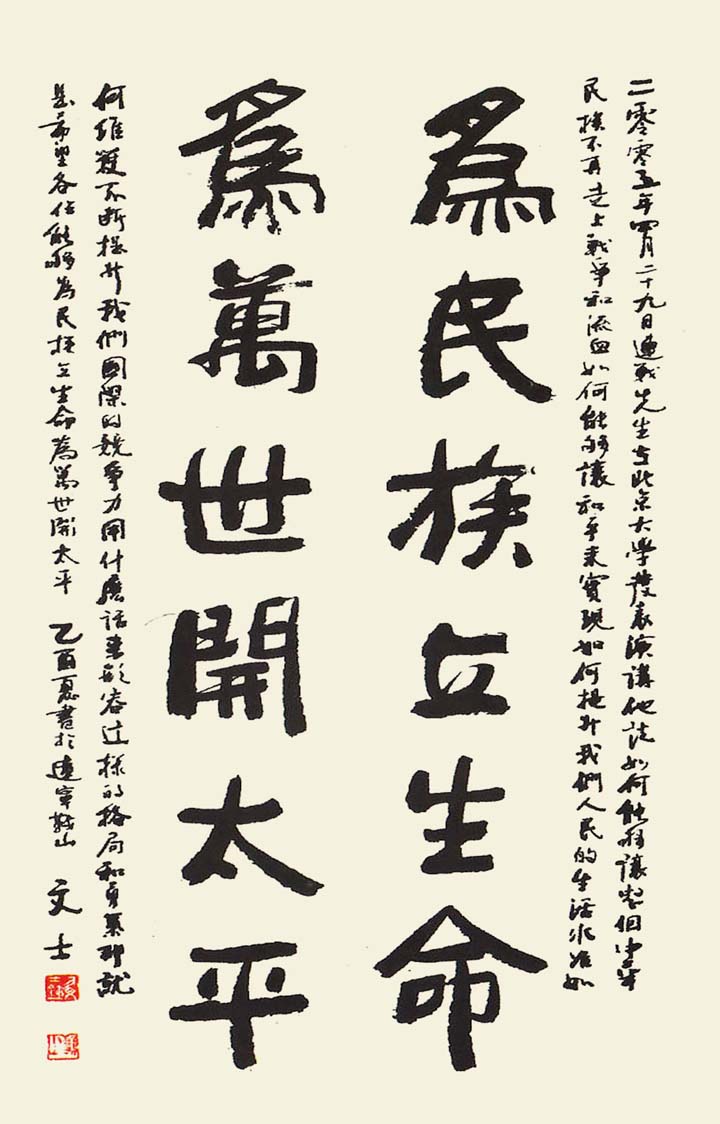 二零零五年四月二十九日連戰先生在北京大學發表演講他說如何能夠讓整個中華
民族不再走上戰爭和流血如何能夠讓和平來實現如何提升我們人民的生活水準如
爲民族立生命
爲萬世開太平
何維護不斷提升我們國際的競爭力用什麼話來形容這樣的格局和勇氣那就
是希望各位能夠為民族立生命為萬世開太平 乙酉夏書於遼寧鞍山 文士